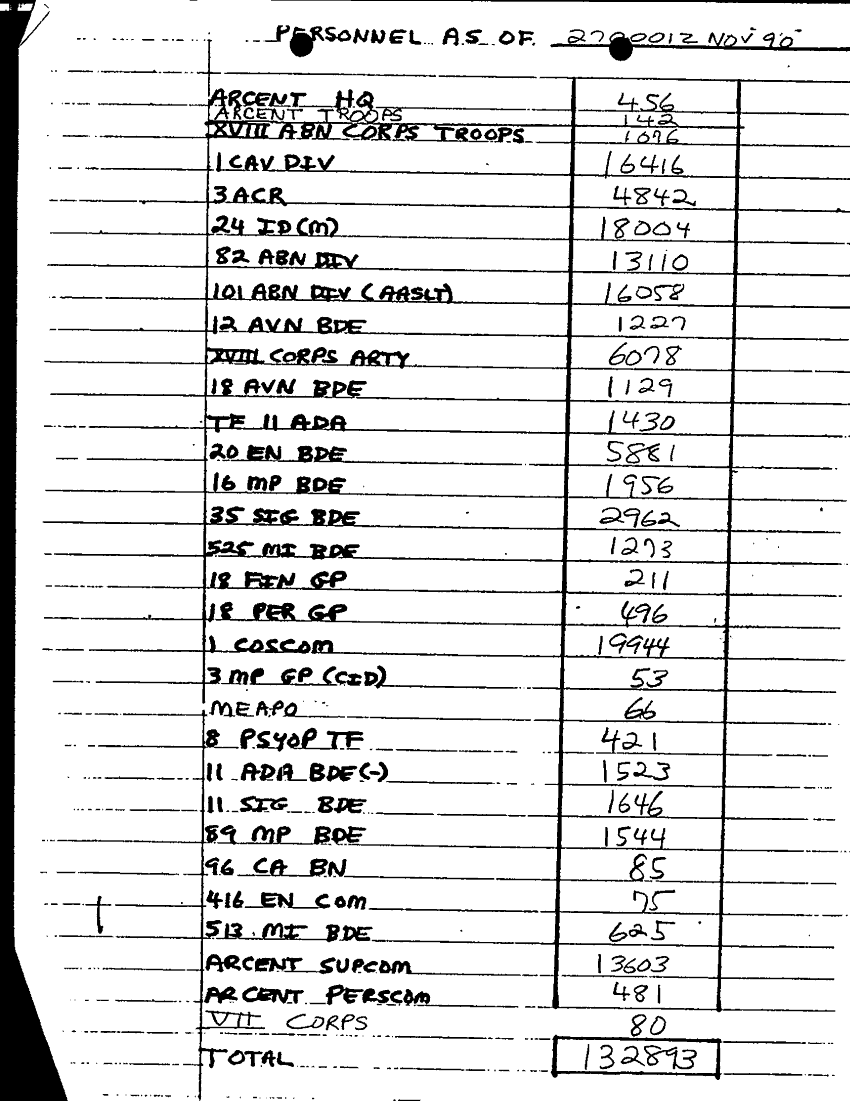 PERSONNEL AS OF 270001Z NOV 90
ARCENT HQ 456
ARCENT TROOPS 142
XVIII ABN CORPS TROOPS 1076
1 CAV DIV 16416
3 ACR 4842
24 ID (M) 18004
82 ABN DIV 13110
101 ABN DIV (AASLT) 16058
12 AVN BDE 1227
XVIII CORPS ARTY 6078
18 AVN BDE 1129
TF 11 ADA 1430
20 EN BDE 5881
16 MP BDE 1956
35 SIG BDE 2962
525 MI BDE 1273
18 FIN GP 211
18 PER GP 496
1 COSCOM 19944
3 MP GP (CID) 53
MEAPO 66
8 PSYOP TF 421
11 ADA BDE (-) 1523
11 SIG BDE 1646
89 MP BDE 1544
96 CA BN 85
416 EN COM 75
513 MI BDE 625
ARCENT SUPCOM 13603
ARCENT PERSCOM 481
VII CORPS 80
TOTAL 132893